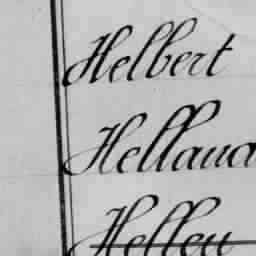 Helbert
Helland
Helleu